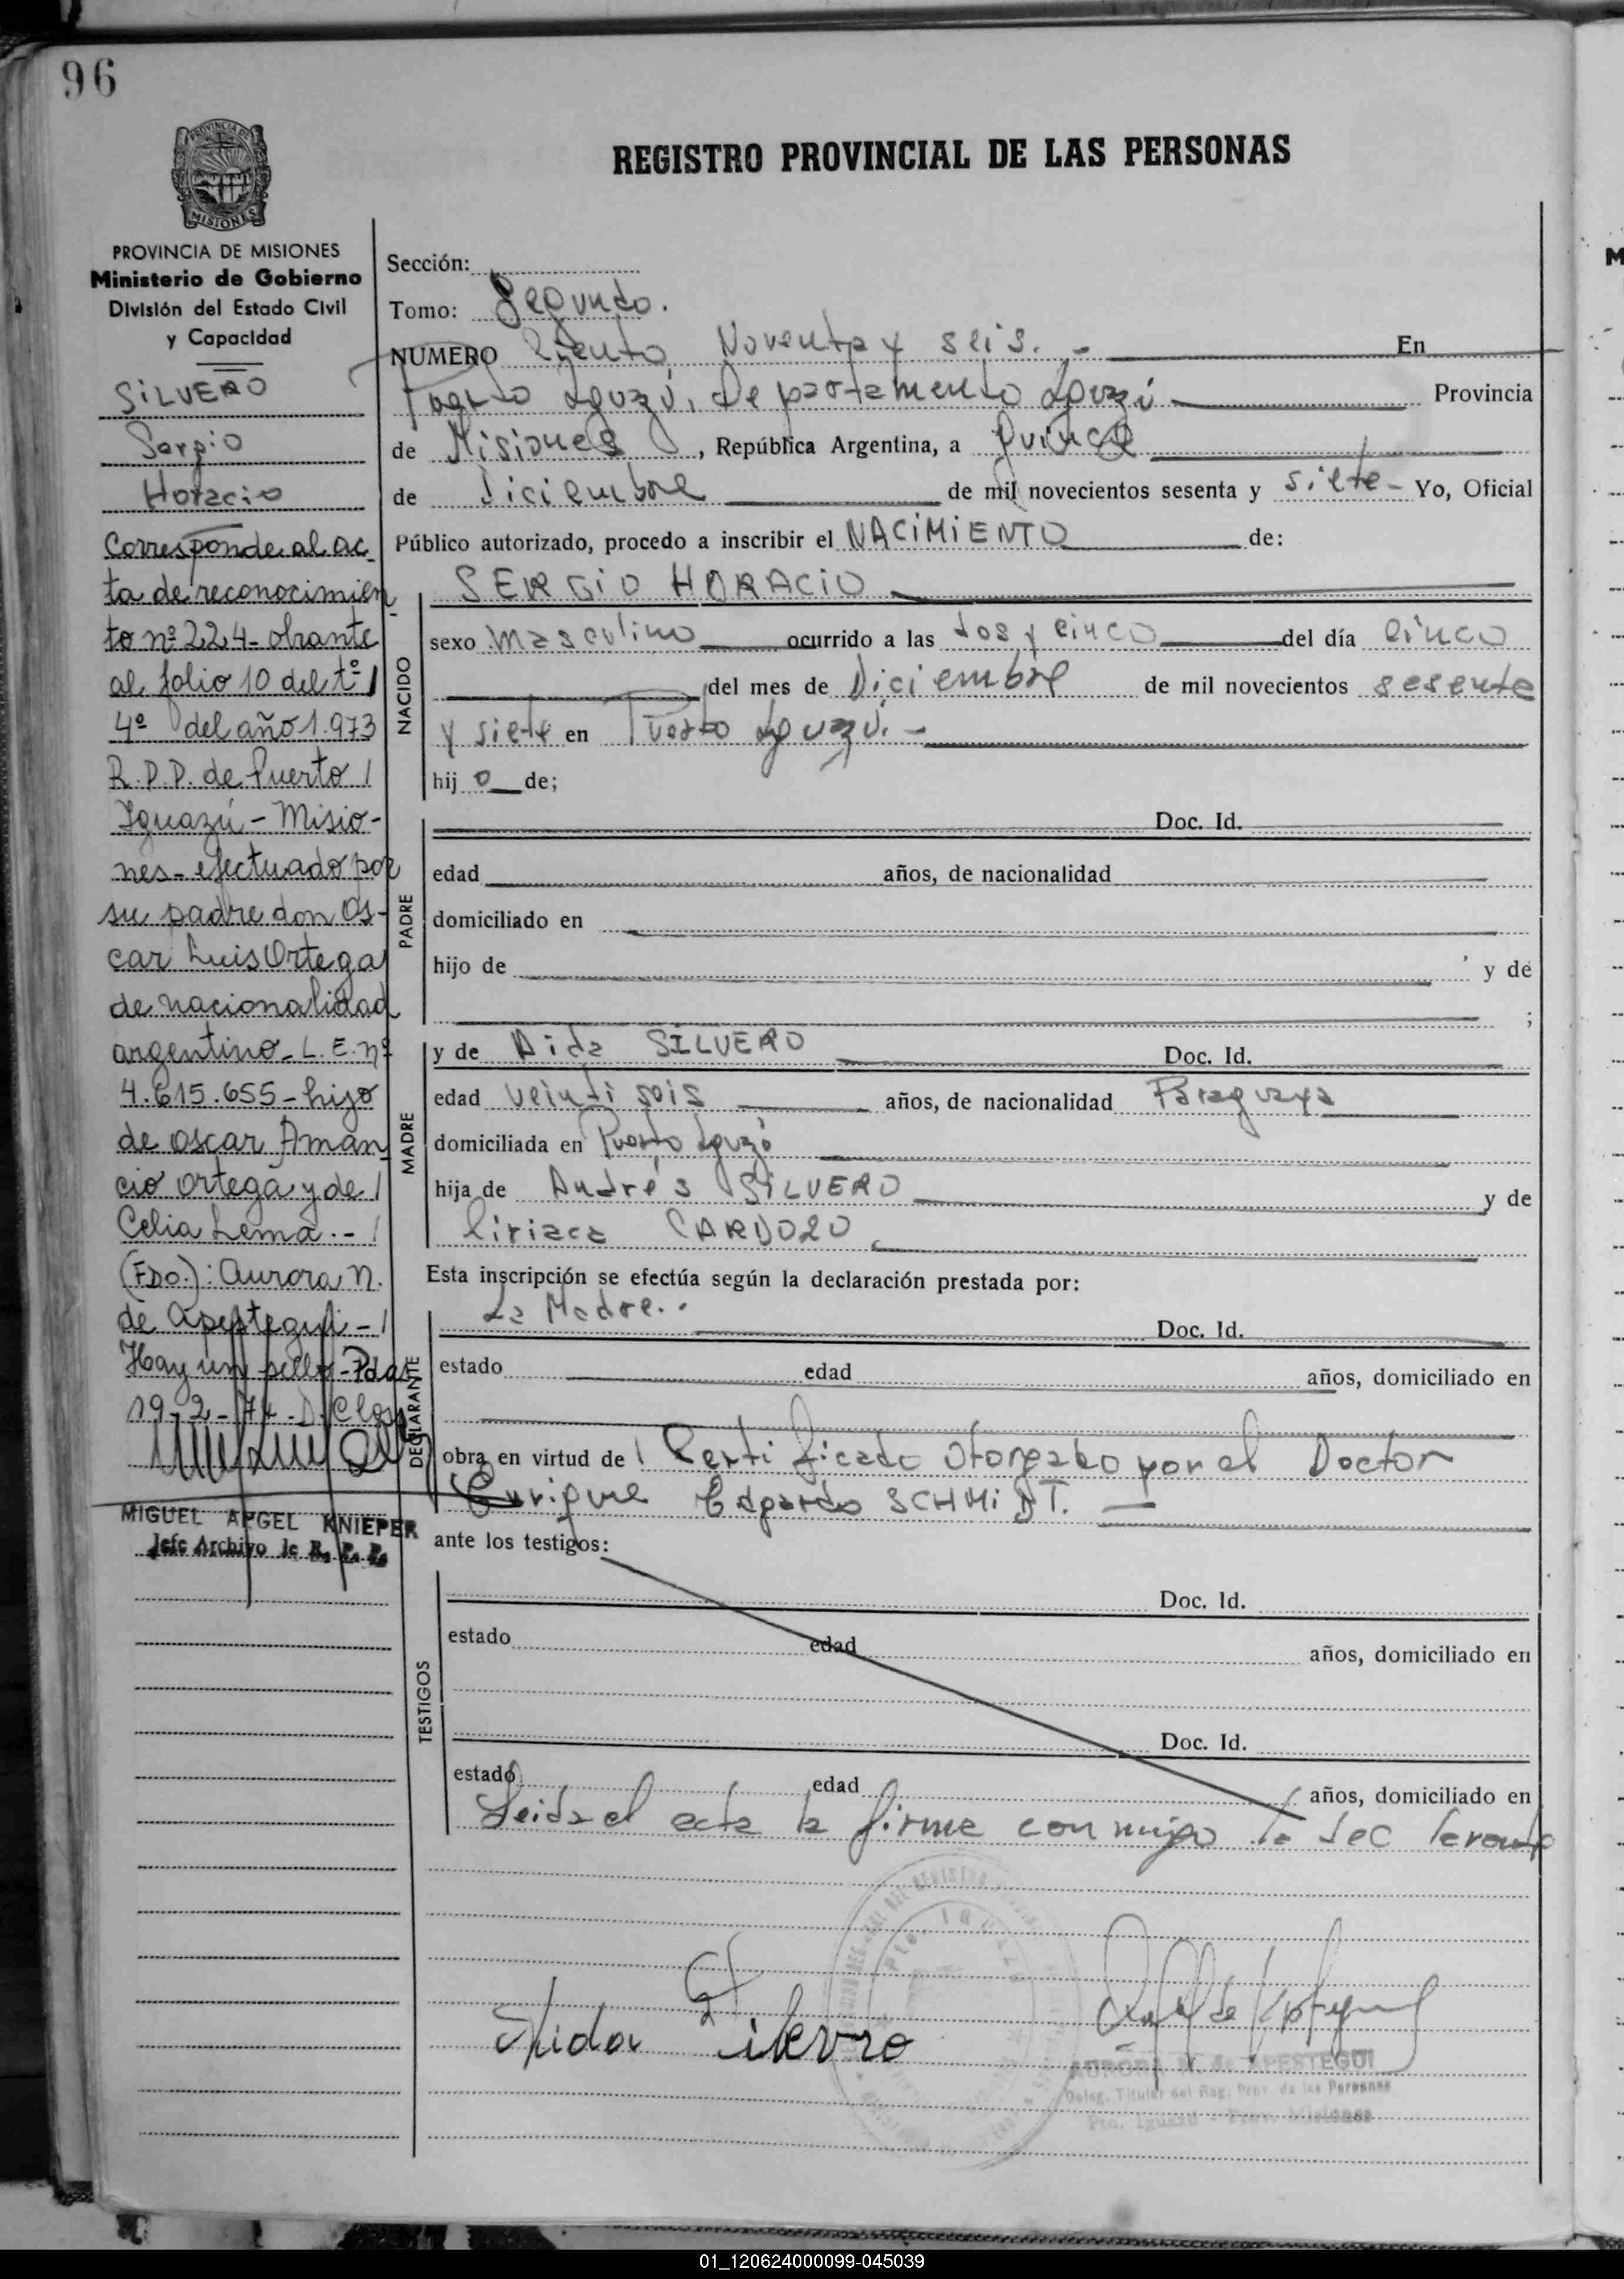 96
PROVINCIA DE
MISIONES
REGISTRO PROVINCIAL DE LAS PERSONAS
PROVINCIA DE MISIONES
Ministerio de Gobierno
División del Estado Civil
y Capacidad
SILVERO
Sergio
Horacio
Corresponde al ac-
ta de reconocimien-
to nº 224 - obrante
al folio 10 del tº /
4º del año 1.973
R.P.P. de Puerto /
Iguazú - Misio-
nes - efectuado por
su padre don Os-
car Luis Ortega
de nacionalidad
argentino - L.E. nº
4.615.655 - hijo
de Oscar Aman-
cio Ortega y de /
Celia Lema.- /
(FDO.): Aurora N.
de Apestegui - /
Hay un sello - Pdas
19-2-74 - D. Clos
MIGUEL ANGEL KNIEPER
Jefe Archivo de R. P. P.
Sección:
Tomo: Segundo.
NUMERO Ciento Noventa y seis. - En
Puerto Iguazú, Departamento Iguazú Provincia
de Misiones, República Argentina, a Quince
de Diciembre de mil novecientos sesenta y siete - Yo, Oficial
Público autorizado, procedo a inscribir el NACIMIENTO de:
SERGIO HORACIO
NACIDO
sexo masculino ocurrido a las dos y cinco del día cinco
del mes de Diciembre de mil novecientos sesenta
y siete en Puerto Iguazú. -
hij o de;
PADRE
Doc. Id.
edad años, de nacionalidad
domiciliado en
hijo de y de
;
MADRE
y de Aida SILVERO Doc. Id.
edad veinti seis años, de nacionalidad Paraguaya
domiciliada en Puerto Iguazú
hija de Andrés SILVERO y de
Ciriaca CARDOZO
Esta inscripción se efectúa según la declaración prestada por:
DECLARANTE
La Madre..
Doc. Id.
estado edad años, domiciliado en
obra en virtud de Certificado otorgado por el Doctor
Enrique Edgardo SCHMIDT. -
ante los testigos:
TESTIGOS
Doc. Id.
estado edad años, domiciliado en
Doc. Id.
estado edad años, domiciliado en
Leida el acta la firma conmigo la declarante
Aida Silvero
AURORA N. de APESTEGUI
Deleg. Titular del Reg. Prov. de las Personas
Pto. Iguazú - Prov. Misiones
M
01_120624000099-045039